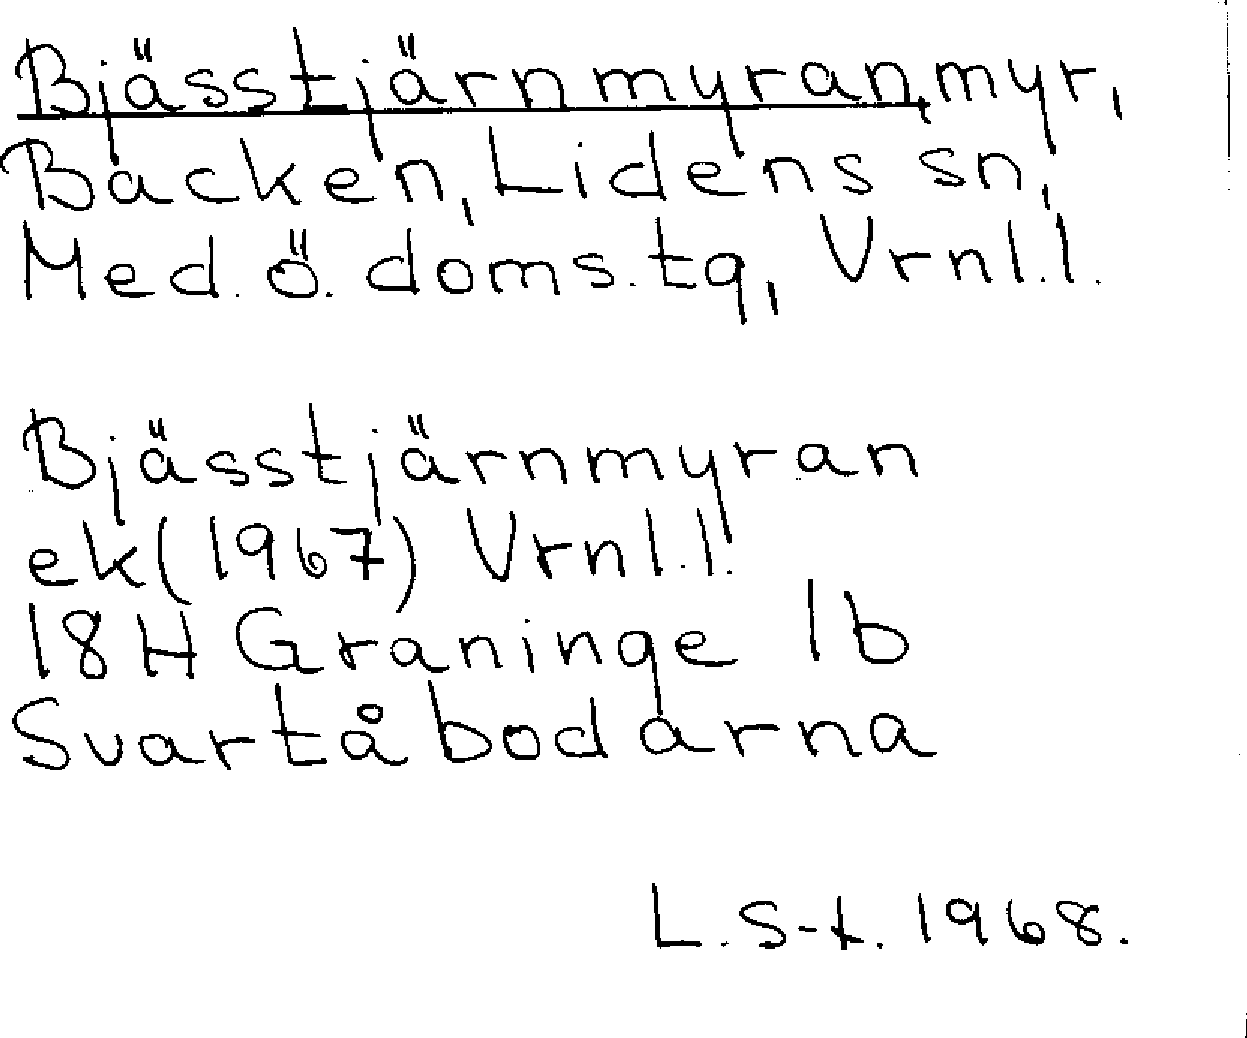 Bjässtjärnmyran, myr,
Backen, Lidens sn,
Med. ö. doms. tg, Vrnl. l.
Bjässtjärnmyran
ek (1967) Vrnl. l.
18H Graninge 1b
Svartåbodarna
L. S-t. 1968.